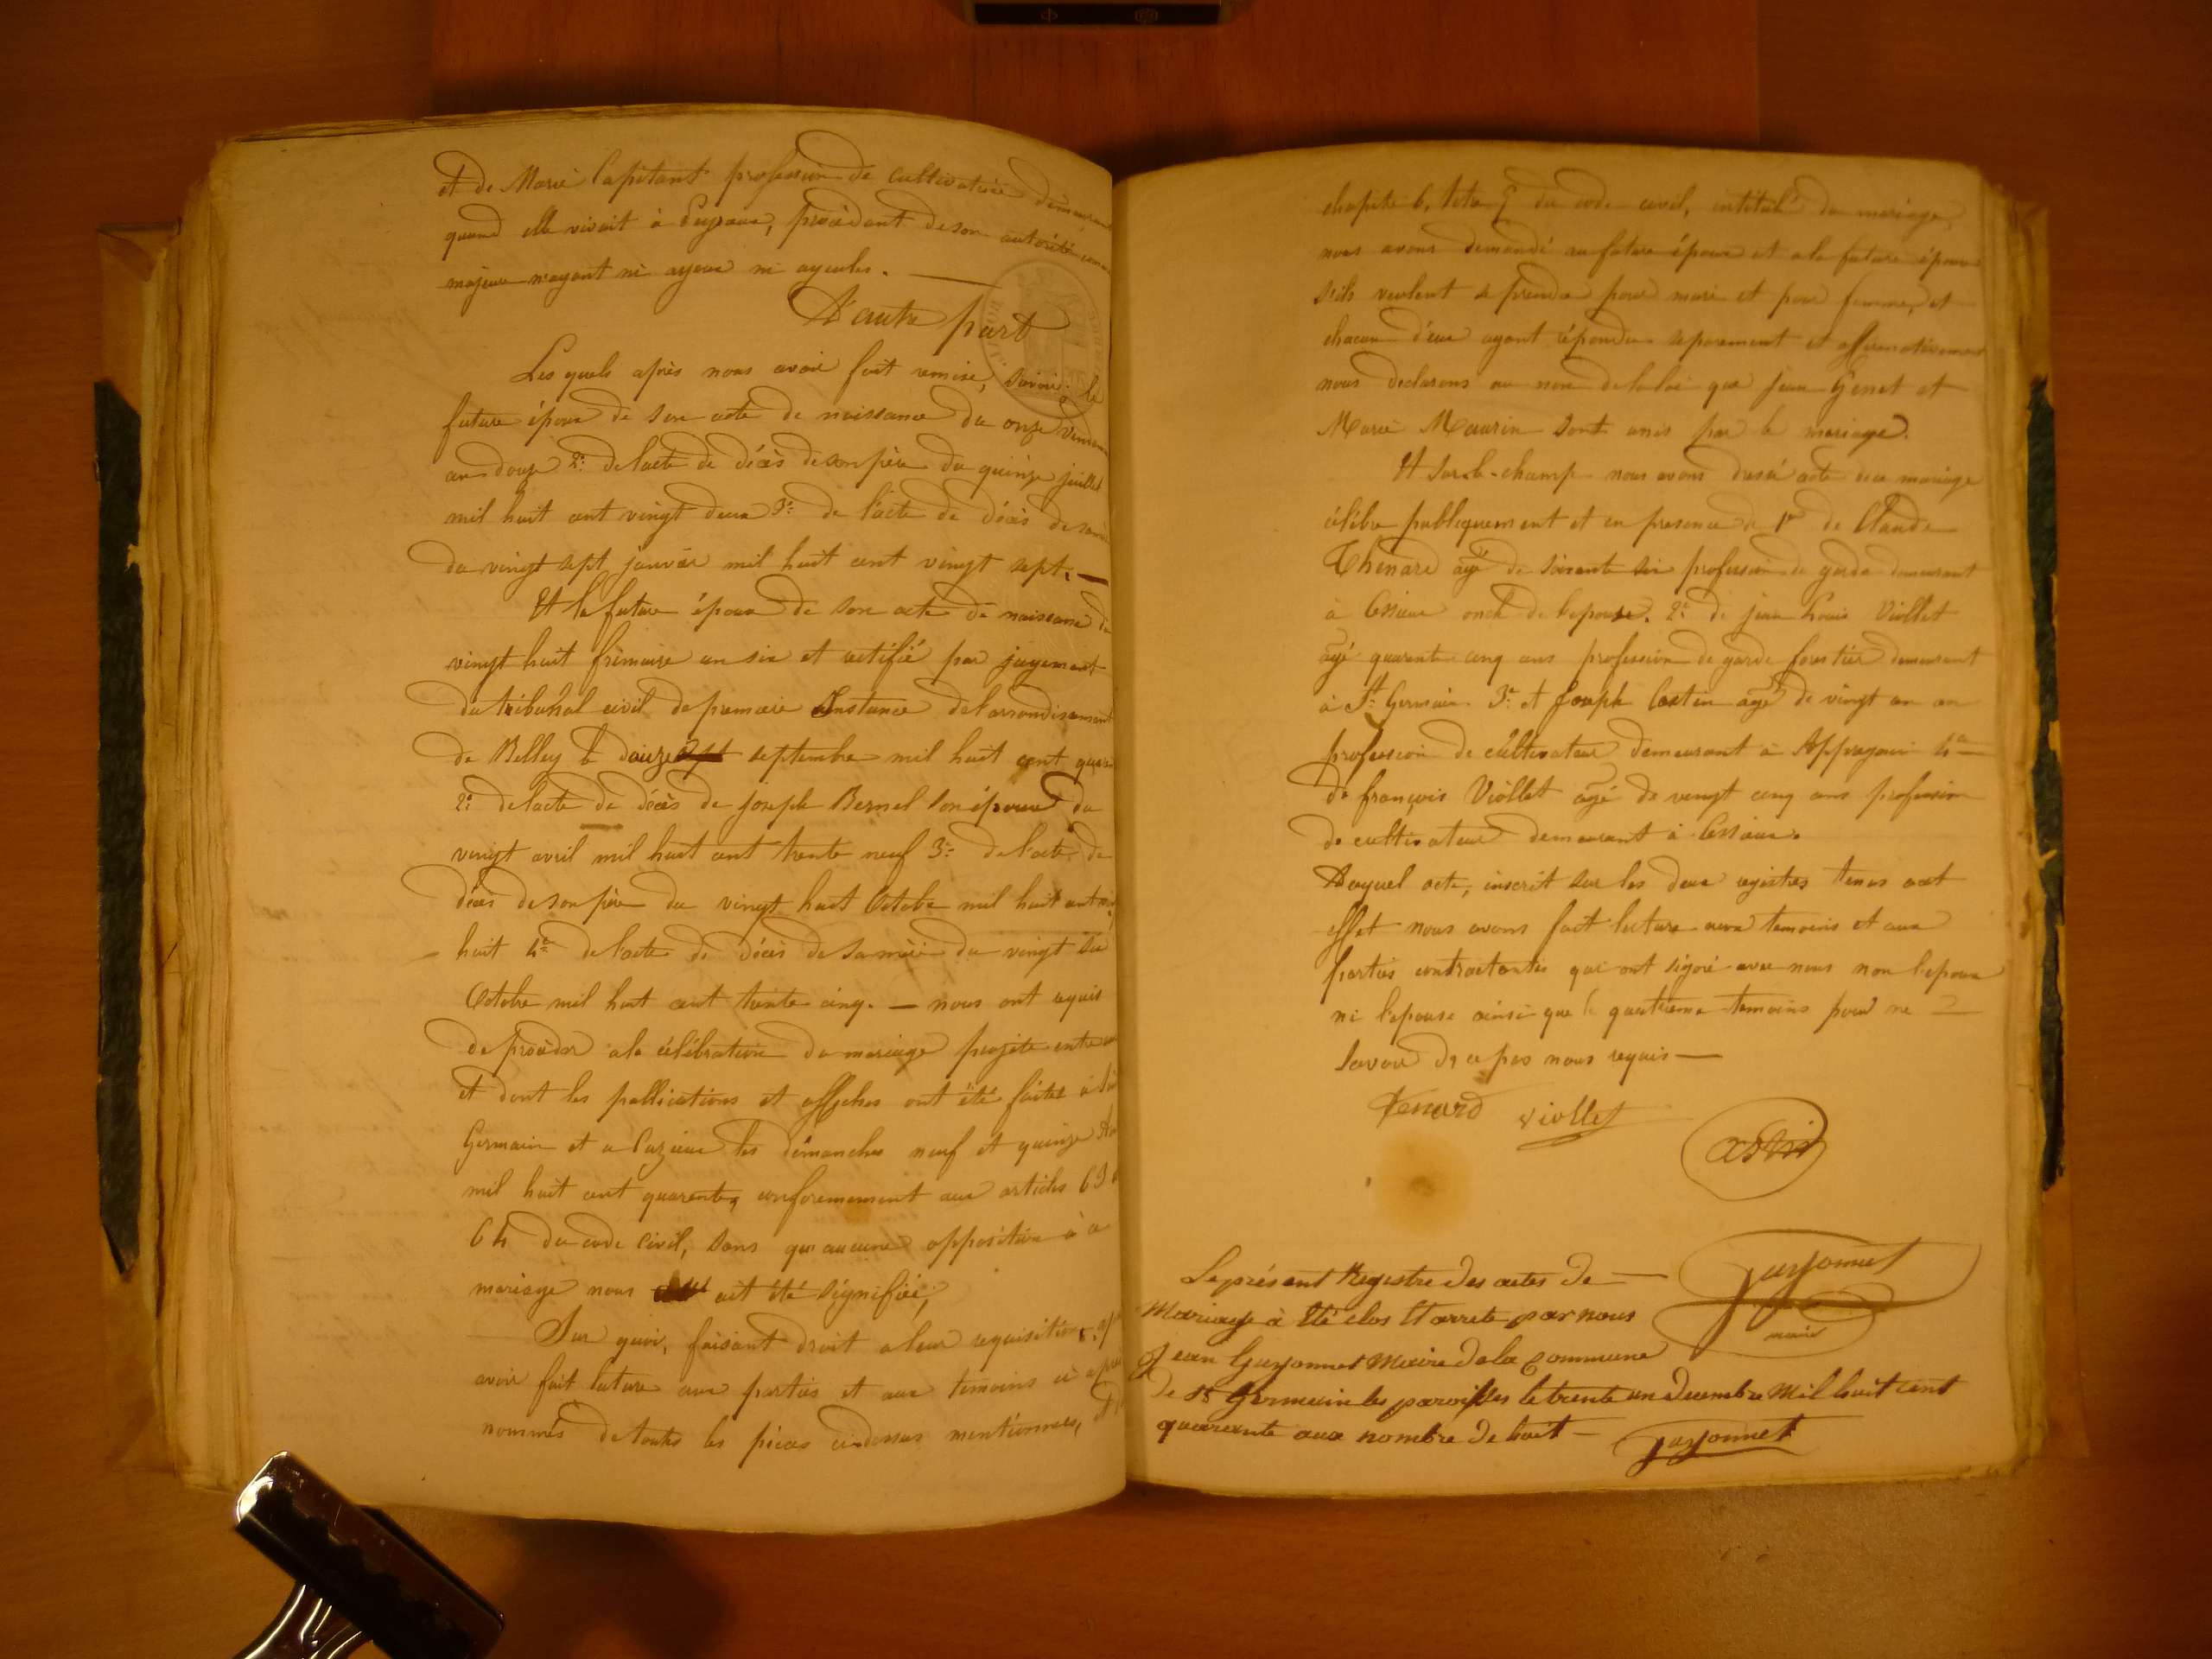 et de Marie Capitant profession de cultivatrice demeurant
quand elle vivait à Peyzieux, procédant de son autorité comme
majeure n'ayant ni ayeux ni ayeules. —
D'autre part
Les quels après nous avoir fait remise, savoir: le
future époux de son acte de naissance du onze
an douze 2e: de lacte de décès de son père du quinze juillet
mil huit cent vingt deux 3e: de l'acte de décès de sa
du vingt sept janvier mil huit cent vingt sept. —
Et la future épouse de son acte de naissance du
vingt huit frimaire an six et rectifié par jugement
du tribunal civil de premiere Instance de l'arrondisement
de Belley le douze septembre mil huit cent
2e: de lacte de décès de joseph Bernel son époux du
vingt avril mil huit cent trente neuf 3e: de l'acte de
décès de son père du vingt huit Octobre mil huit cent
huit 4e de lacte de décès de sa mère du vingt six
Octobre mil huit cent trente cinq. — nous ont requis
de procéder a la célébration du mariage projeté entre
et dont les publications et affiches ont été faites à
Germain et a Cuzieux les dimanches neuf et quinze
mil huit cent quarente, conforemement aux articles 63
64 du code Civil, sans qu'aucune opposition à ce
mariage nous ait été signifiée;
Sur quoi, faisant droit a leur requisition,
avoir fait lecture aux parties et aux temoins ci
nommés de toutes les pièces ci-dessus mentionnées,
chapitre 6, du code civil, intitulé du mariage
nous avons demandé au future époux et a la future épouse
s'ils veulent se prendre pour mari et pour femme, et
chacun d'eux ayant répondu séparement et affirmativement
nous declarons au nom de la loi que jean Genet et
Marie Maurin sont unis par le mariage.
Et sur le-champ nous avons dressé acte de ce mariage
célébré publiquement et en presence de 1er de Claude
Thenard agé de soixante six profession de garde demeurant
à Cessieux oncle de l'epouse. 2e: de jean Louis Viollet
agé quarente cinq ans profession de garde forestier demeurant
à St. Germain 3e et Joseph Castin agé de vingt un an
profession de cultivateur demeurant à Appregnin 4e
de françois Viollet agé de vingt cinq ans profession
de cultivateur demeurant à Cessieux.
Duquel acte, inscrit sur les deux registres tenus a cet
effet nous avons fait lecture aux temoins et aux
parties contractantes qui ont signé avec nous non l'epoux
ni l'epouse ainsi que le quatrieme temoins pour ne
savoir de ce par nous requis —
Tenard Viollet
Castin
Le présent Registre des actes de —
Mariage à été clos et arrete par nous
Jean Guyonnet Maire de la commune
de St Germain les paroisses le trente un decembre mil huit cent
quarente aux nombre de huit —
Guyonnet
maire
Guyonnet